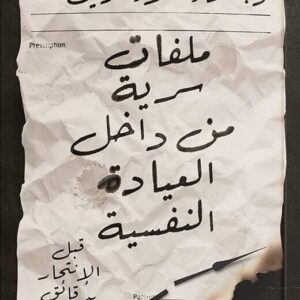 Prescription:
ملفات
سرية
من داخل
العيادة
النفسية
قبل
الإنتحار
دقائق